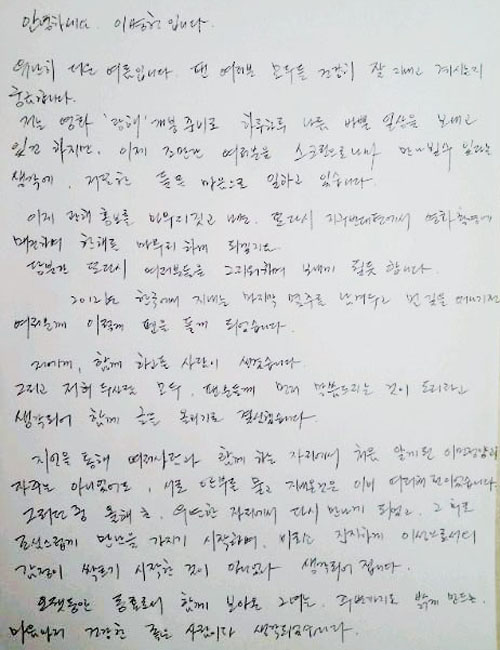 안녕하세요. 이병헌입니다.
유난히 더운 여름입니다. 팬 여러분 모두들 건강히 잘 지내고 계시는지
궁금합니다.
저는 영화 '광해' 개봉 준비로 하루하루 나름 바쁜 일상을 보내고
있긴 하지만, 이제 조만간 여러분을 스크린으로나마 만나뵐수 있다는
생각에, 하고 있습니다
이제 광해 홍보를 마무리짓고 나면, 또다시 지구반대편에서 영화촬영에
매진하며 한해를 마무리 하게 되겠지요
당분간 또다시 여러분들을 그리워하며 보내게 될듯 합니다.
2012년 한국에서 지내는 마지막 몇주를 남겨두고 먼 길을 떠나기전
여러분께 이렇게 펜을 들게 되었습니다.
저에게, 함께 하고픈 사람이 생겼습니다
그리고 저희 두사람 모두, 팬분들께 먼저 말씀드리는 것이 도리라고
생각되어 함께 글을 올리기로 결심했습니다.
지인을 통해 여러사람과 함께 하는 자리에서 처음 알게된 이민정양과
자주는 아니었어도, 서로 안부를 묻고 지내온것은 이미 여러해 전이었습니다.
그러던 중 올해 초, 우연한 자리에서 다시 만나게 되었고, 그 뒤로
조심스럽게 만남을 가지기 시작하며, 비로소 진지하게 이성으로서의
감정이 싹트기 시작한 것이 아니었나 생각되어 집니다.
오랫동안 동료로서 함께 보아온 그녀는, 주변까지도 밝게 만드는,
마음나이 건강한 좋은 사람이다 생각되었습니다.